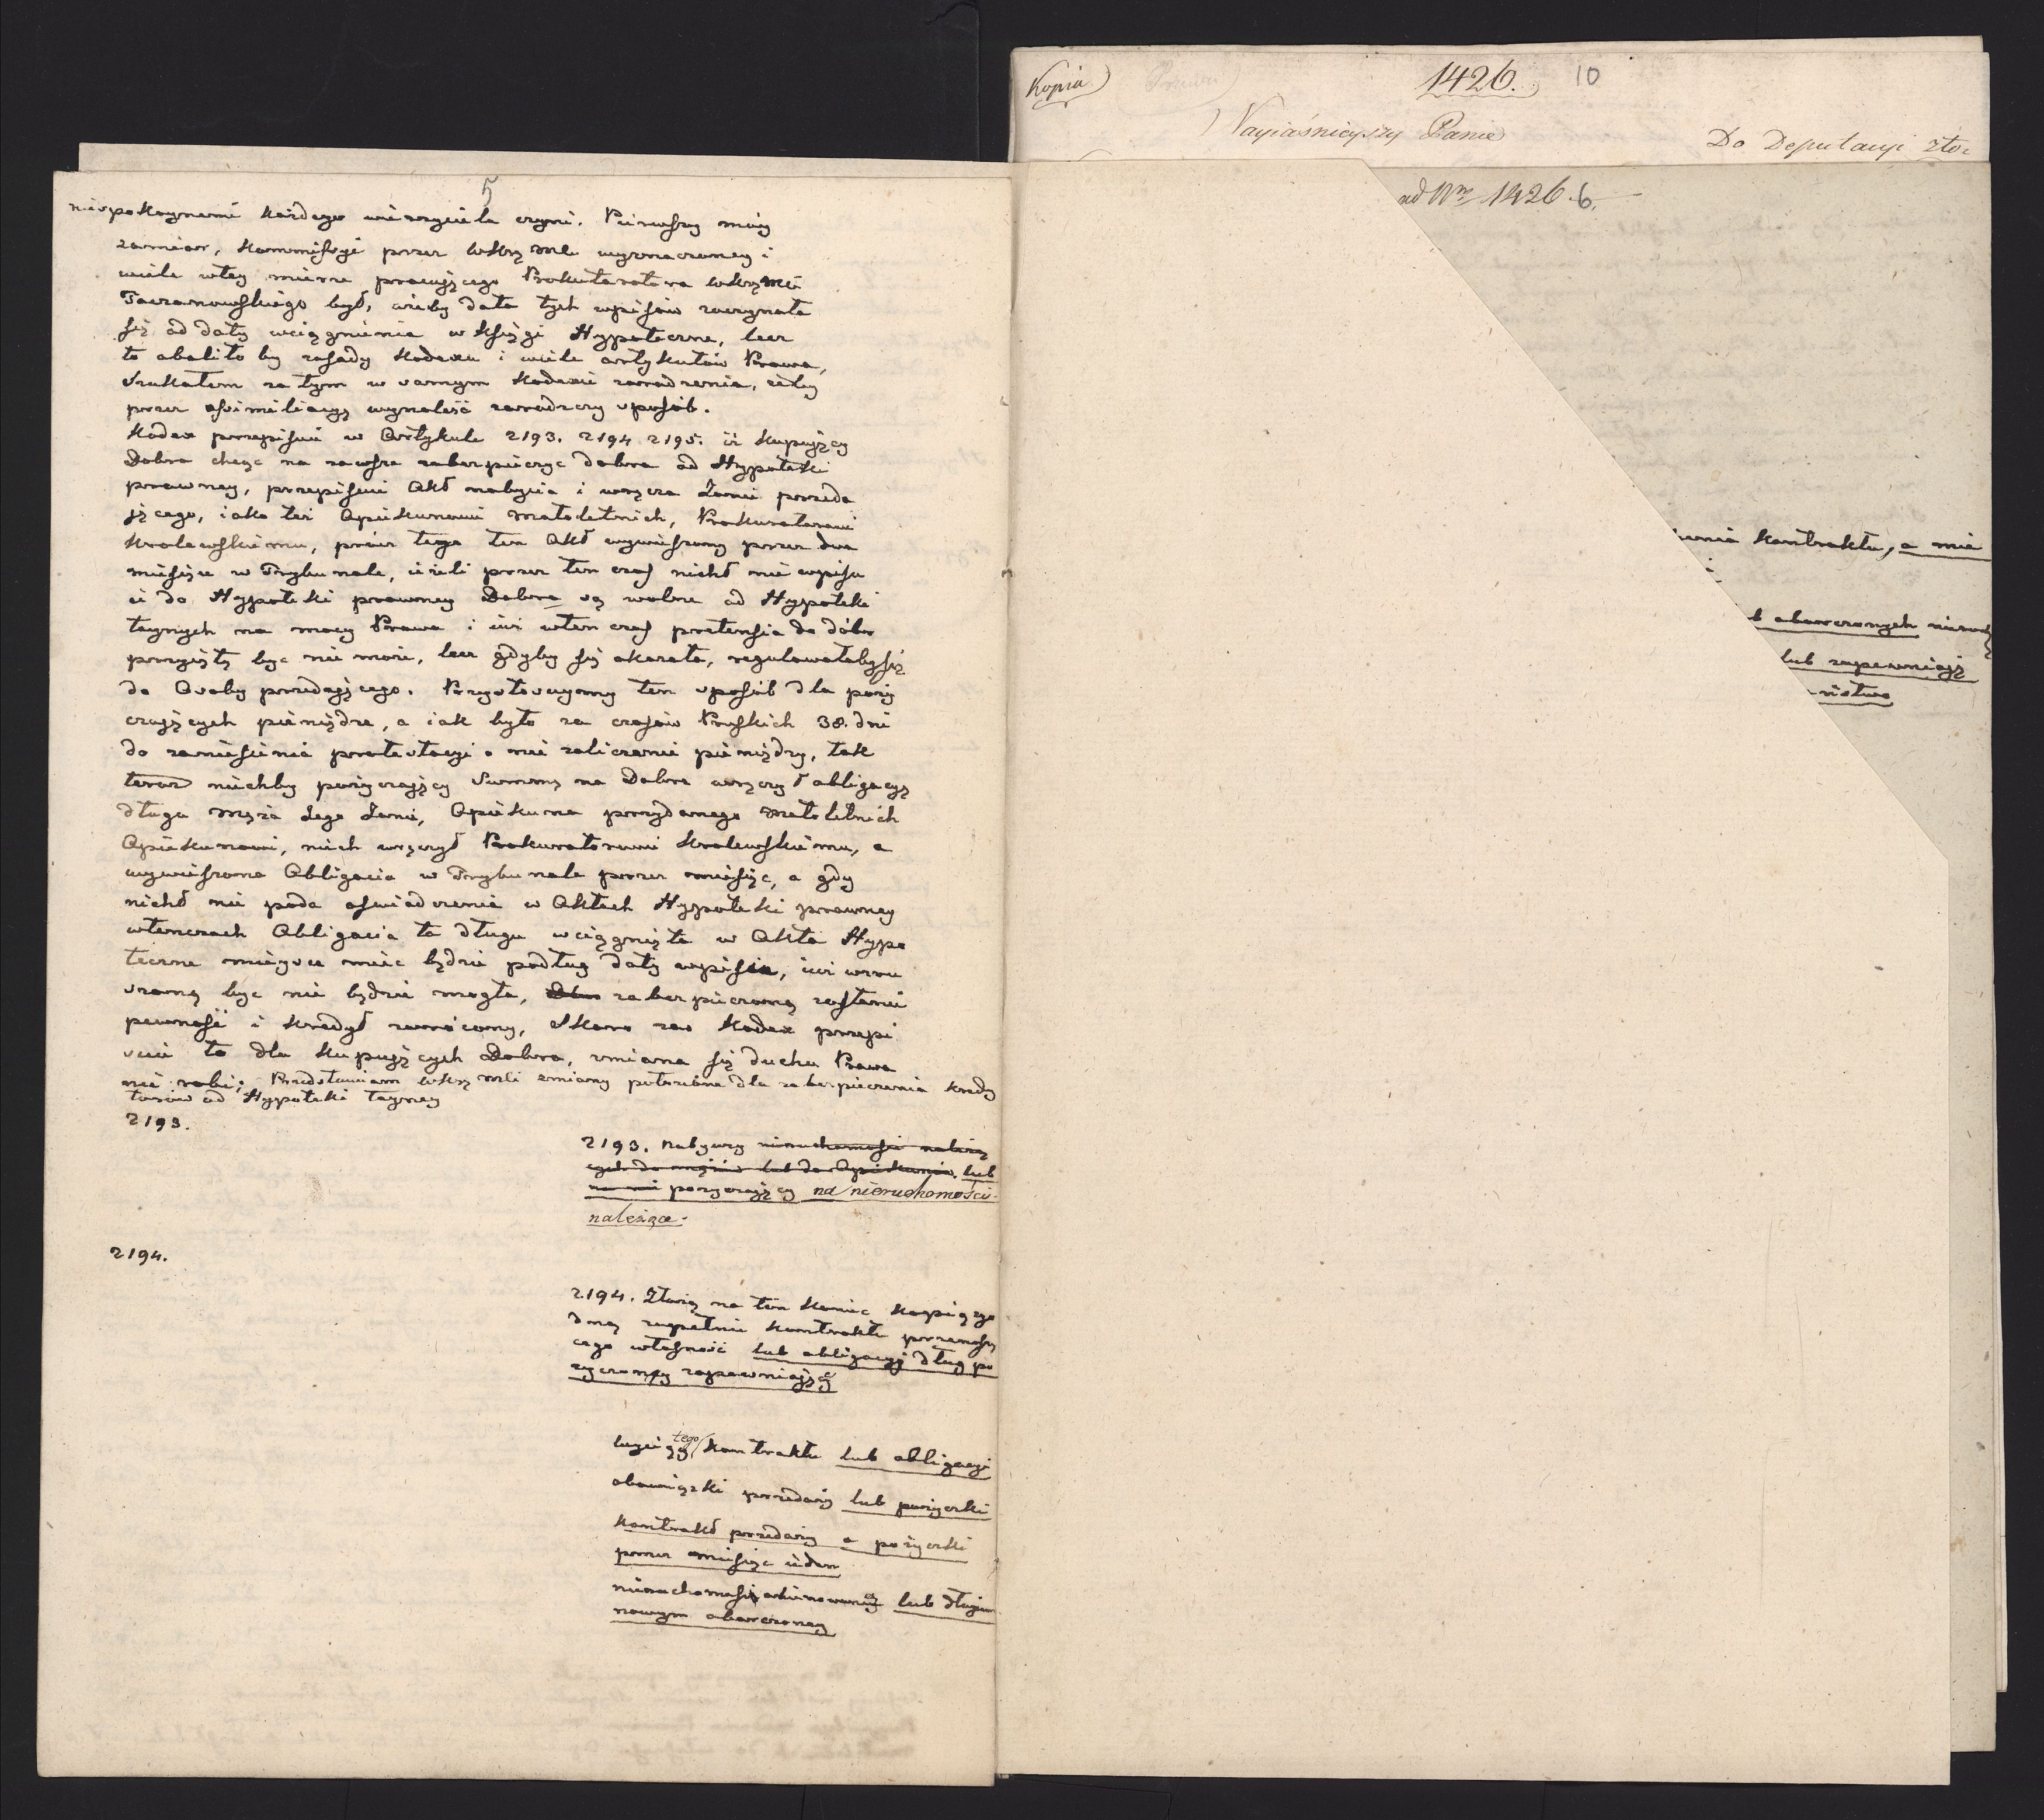 5
niespokoynemi każdego wierzyciela czyni. Pierwszy moy
zamiar, Kommissyi przez WKrę Mć wyznaczoney i
wiele wtey mierze pracującego Prokuratora WKrę Mci
Taczanowskiego był, ażeby data tych wpisów zaczynała
się od daty wciągnienia w Księgi Hypoteczne, lecz
to obaliło by zasady Kodexu i wiele artykułów Prawa,
Szukałem za tym w samym Kodexie zaradzenia, żeby
przez assimilacyą wynaleść zaradczy sposób.
Kodex przepisuie w Artykule 2193. 2194 2195. iż kupuiący
Dobra chcąc na zawsze zabezpieczyc dobra od Hypoteki
prawney, przepisuie Akt nabycia i wręcza Żonie przeda
jącego, iako też Opiekunowi małoletnich, Prokuratorowi
Krolewskiemu, prócz tego ten Akt wywieszony przez dwa
miesiące w Trybunale, ieżeli przez ten czas nicht nie wpisu
ie do Hypoteki prawney Dobra są wolne od Hypoteki
taynych na mocy Prawa i iuż wten czas pretensia do dóbr
przyiętą byc nie może, lecz gdyby się okazała, regulowałabysię
do Osoby przedaiącego. Przystosuymy ten sposób dla poży
czaiących pieniądze, a iak było za czasów Pruskich 38. dni
do zaniesienia protestacyi o nie zaliczenie pieniędzy, tak
teraz niechby pożyczaiący Summę na Dobra wręczył obligacyą
długu męża Jego Żonie, Opiekuna przydanego małoletnich
Opiekunowi, niech wręczył Prokuratorowi Krolewskiemu, a
wywieszona Obligacia w Trybunale przez miesiąc, a gdy
nicht nie poda oświadczenia w Aktach Hypoteki prawney
wtenczach Obligacia ta długu wciągnięta w Akta Hypo
teczne mieysce miec będzie podług daty wpisu, iuż wzru
szoną byc nie będzie mogła, zabezpieczoną zostanie
pewność i kredyt zwrócony, Skoro zas Kodex przepi
suie to dla kupuiących Dobra, zmiana się duchu Prawa
nie robi; Przedstawiam WKrę Mci zmiany potrzebne dla zabezpieczenia kredy
torów od Hypoteki tayney
2193.
2193. Nabywcy nieruchomości należą
cych do mężów lub do Opiekunów, lub
na nie pożyczaiący na nieruchomości
należące.
2194.
2194. Złożą na ten koniec kopię zgo
dną zupełnie kontraktu przenoszą
cego własność lub obligacyi dług po
życzony zapewniaiącą
wyciąg tego kontraktu lub obligacyi
obowiązki przedaży lub pożyczki
kontrakt przedaży a pożyczki
przez miesiąc ieden
nieruchomości odemowaney lub długiem
nowym obarczoney
Kopia
1426. 10
Nayiaśnieyszy Panie
Do Deputacyi zło
ad Nrm 1426 6.
kontraktu, a nie
obarczonych nieruch
lub zapewniaią